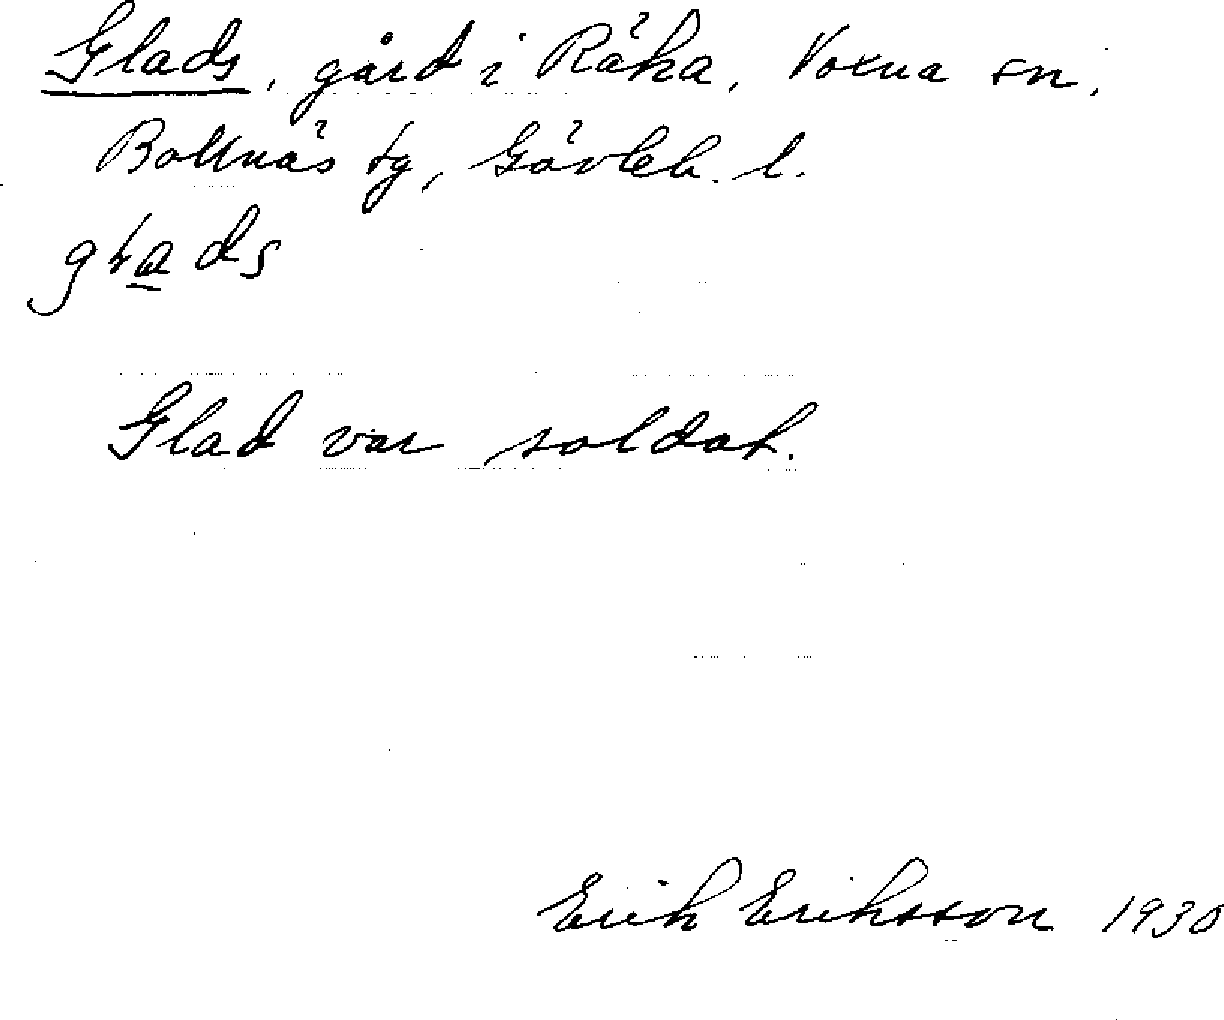 Glads, gård i Räka, Voxna sn,
Bollnäs tg, Gävleb. l.
glads
Glad var soldat.
Erik Eriksson 1930